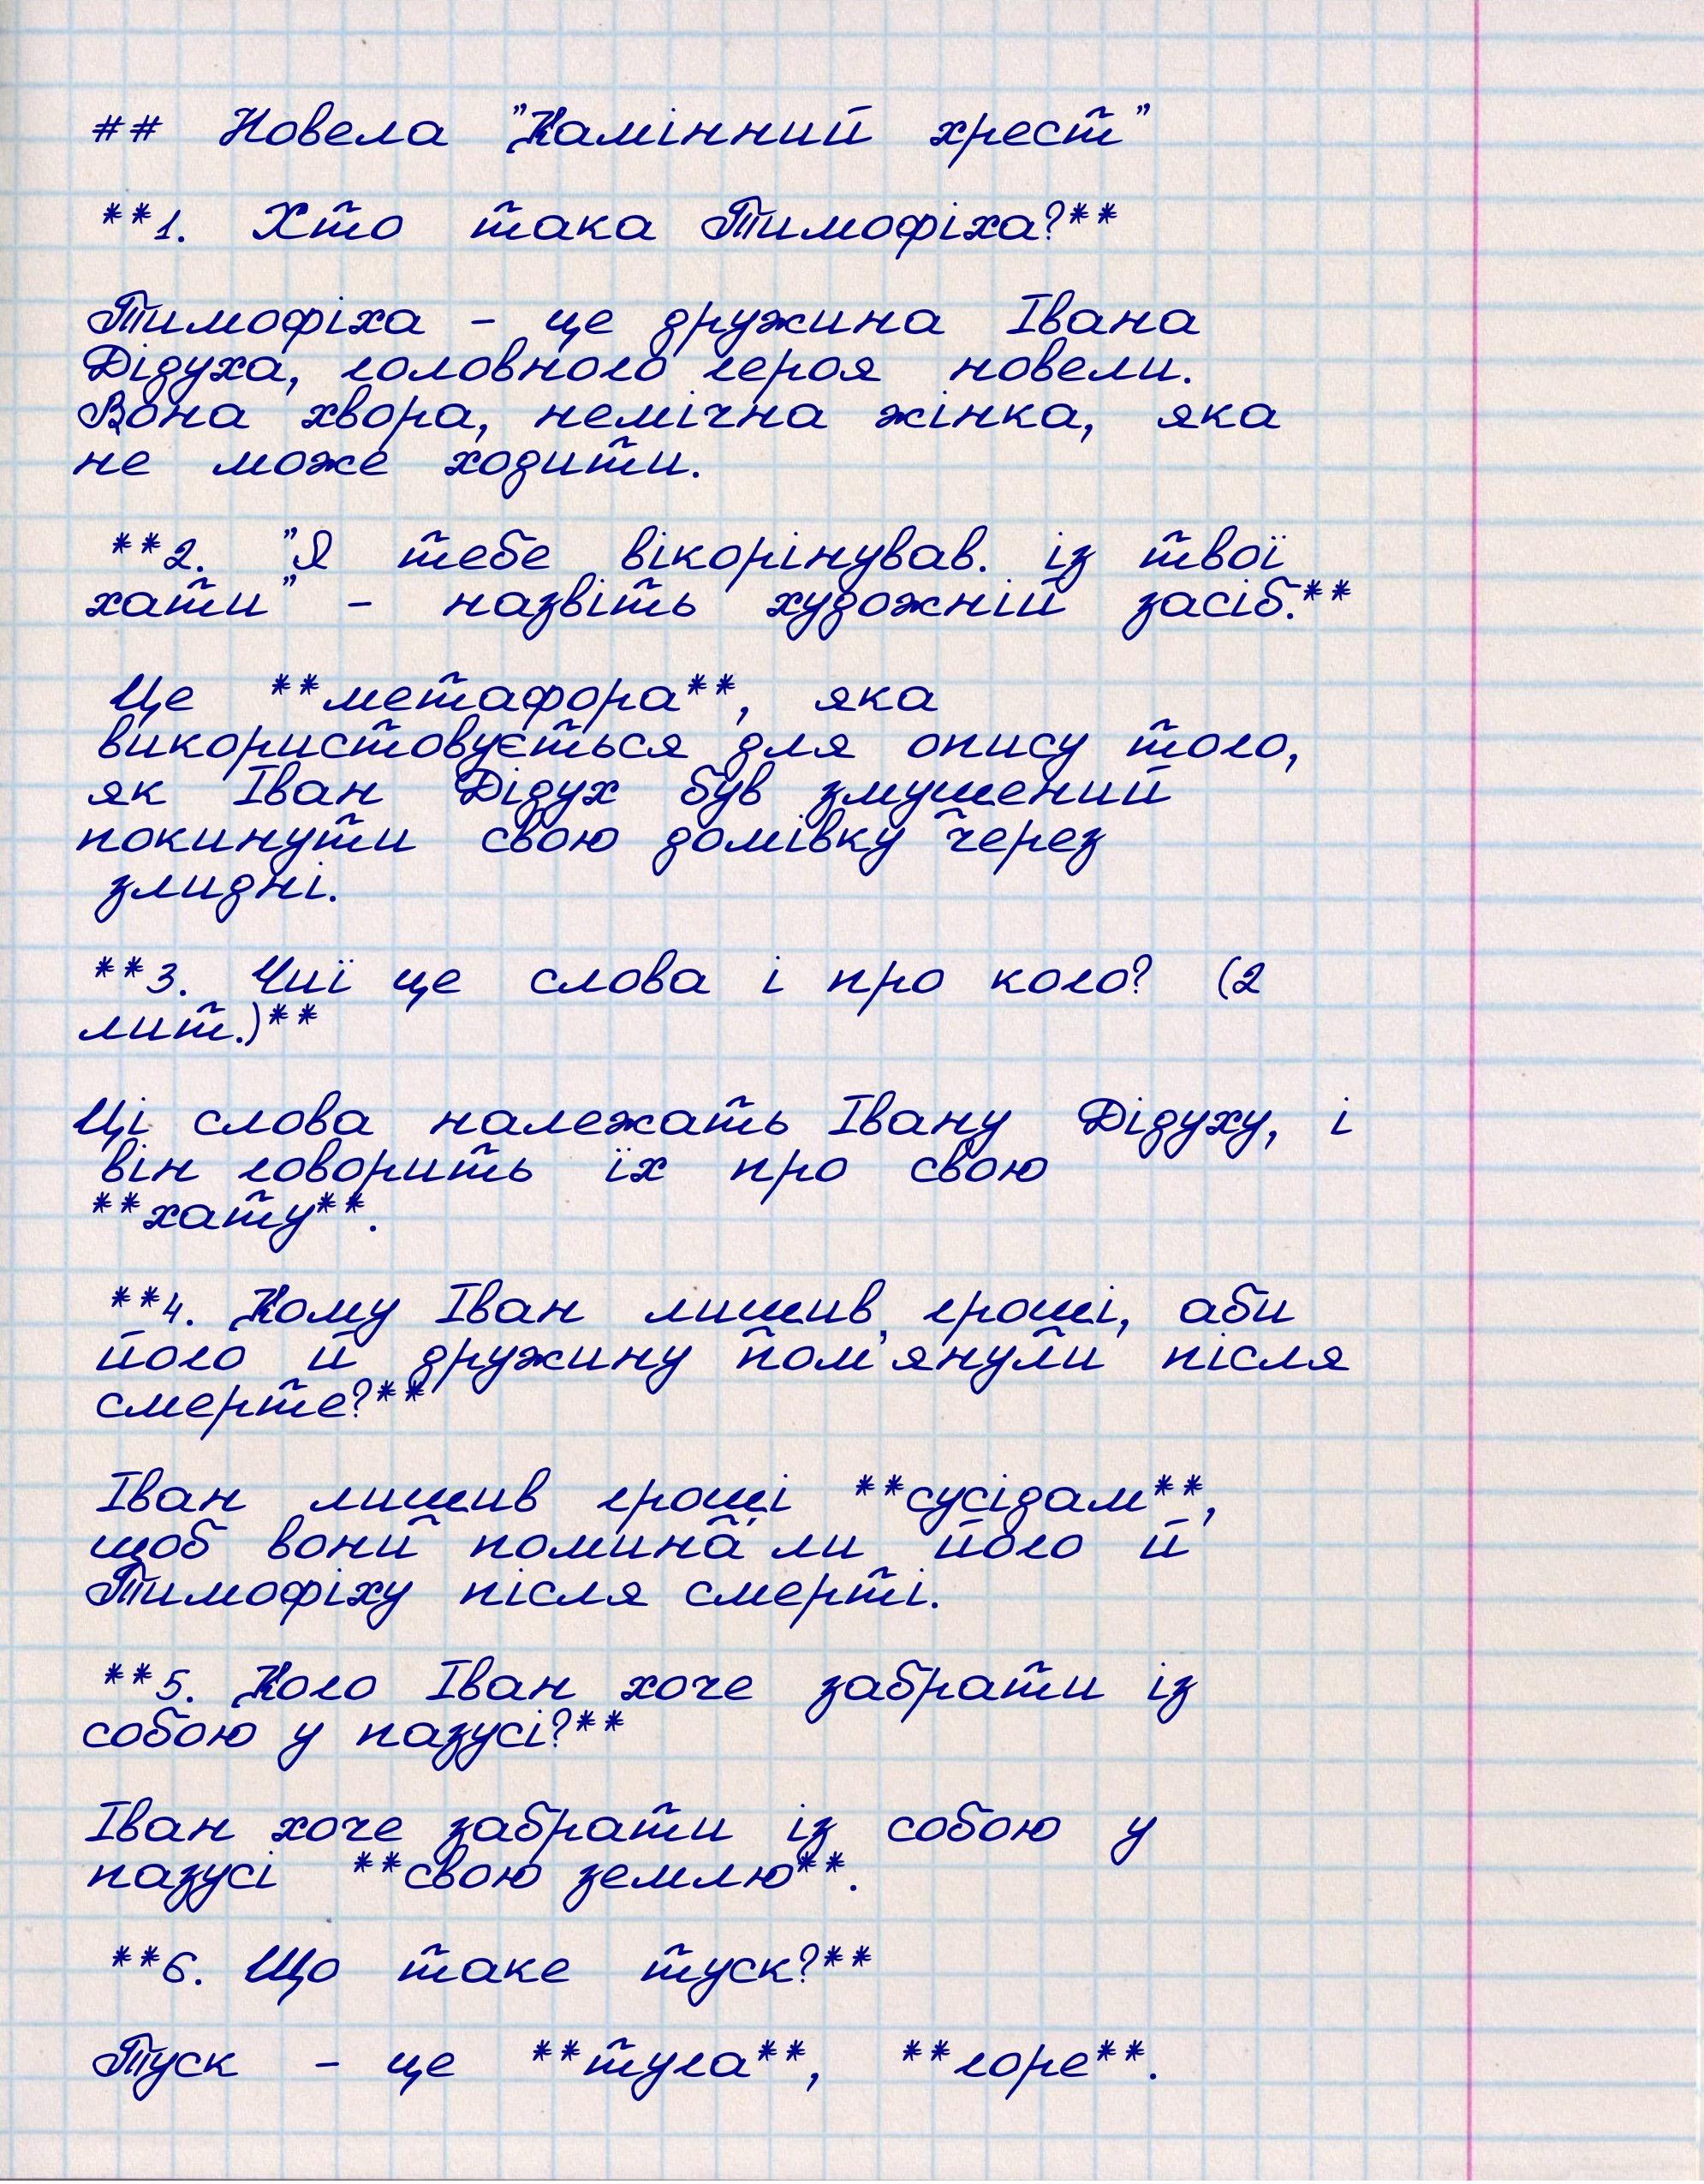 ## Новела "Камінний хрест"
**1. Хто така Тимофіха?**
Тимофіха - це дружина Івана
Дідуха, головного героя новели.
Вона хвора, немічна жінка, яка
не може ходити.
**2. "Я тебе вікорінував. із твої
хати" - назвіть художній засіб.**
Це **метафора**, яка
використовується для опису того,
як Іван Дідух був змушений
покинути свою домівку через
злидні.
**3. Чиї це слова і про кого? (2
лит.)**
Ці слова належать Івану Дідуху, і
він говорить їх про свою
**хату**.
**4. Кому Іван лишив гроші, аби
його й дружину пом'янули після
смерте?**
Іван лишив гроші **сусідам**,
щоб вони помина́ли його й
Тимофіху після смерті.
**5. Кого Іван хоче забрати із
собою у пазусі?**
Іван хоче забрати із собою у
пазусі **свою землю**.
**6. Що таке туск?**
Туск - це **туга**, **горе**.